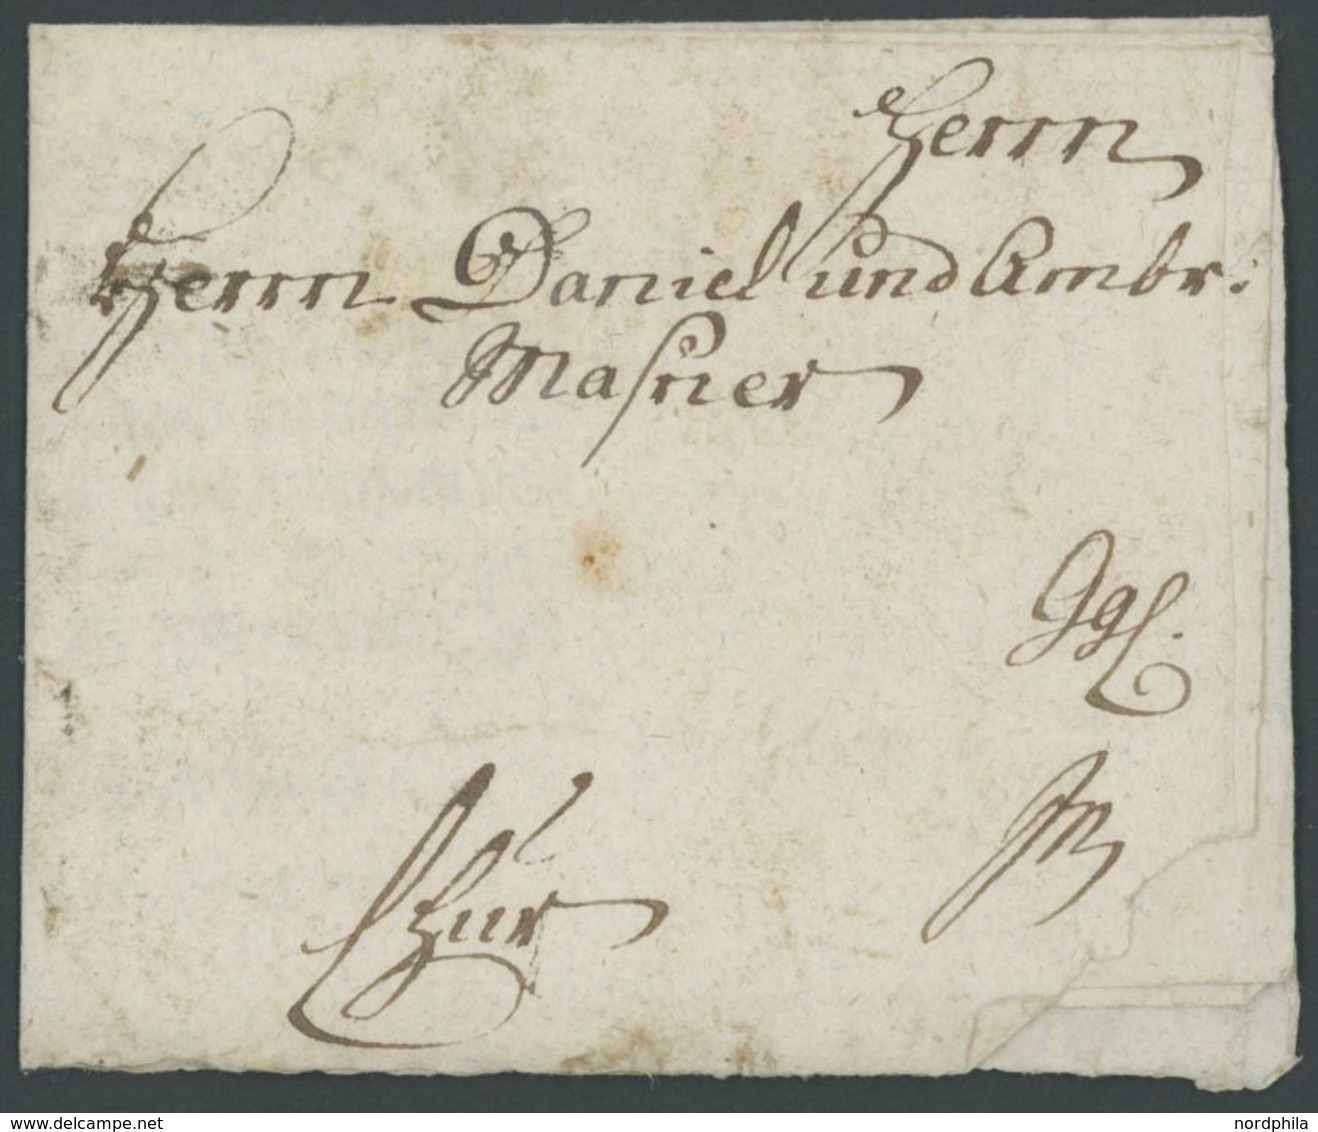 Herrn
Herrn Daniel und Ambr:
Masner
Ggl.
In
Chur
www.delcampe.net
nordphila